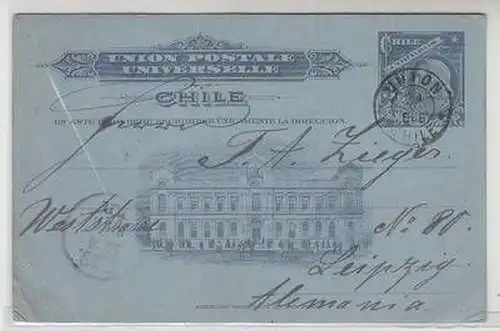 UNION POSTALE
UNIVERSELLE
CHILE
CHILE
EN ESTE LADO DEBE ESCRIBIRSE UNICAMENTE LA DIRECCION.
UNION
CHILE
T. A. Zieger
Weststrasse
No 80.
Leipzig.
Alemania.